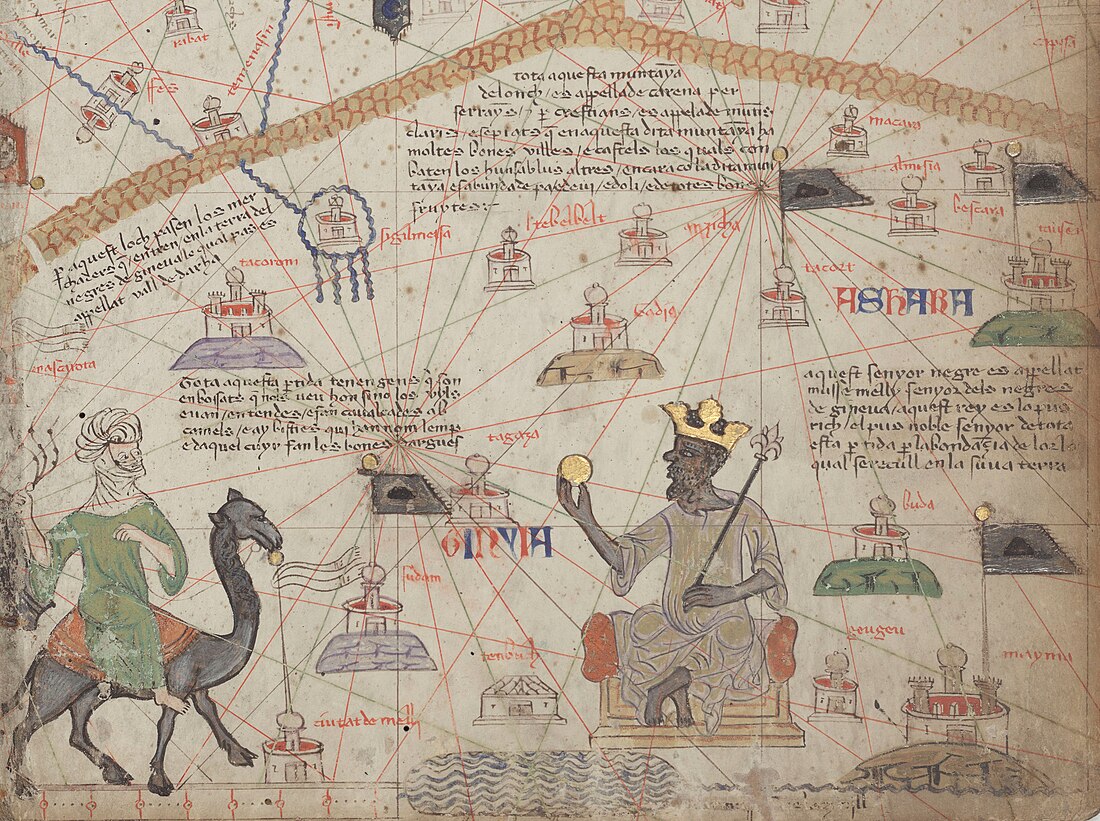 rabat
fes
tota aquesta muntaya
de lonch / es appellade carena per
serrayns / e p crestians / es appelade muns
claris e sepiats q en aquesta dita muntaya ha
moltes bones villes / e castels los quals com
baten los huns ab lus altres / encara co la dita mun
taya es abunda de pa e de vi / e doli / e de totes bones
fruytes
macara
almisia
bescara
sigilmessa
tebelbelt
tacort
p aquest loch pasen los mer
chaders q entren en la terra del
negres de gineva lo qual pas es
appellat vall de darha
tacorom
ASHARA
Tota aquesta ptida tenen gens q son
enbosats q nols veu hon sino los uyls
e van / en tendes / e fan cavalcades ab
camels / e ay bisties qui han nom lemp
e daquel cuyr fan les bones dargues
aquest senyor negre es appellat
musse melly senyor dels negres
de gineva / aquest rey es lo pus
rich / el pus noble senyor de tota
esta ptida p labondançia de lor lo
qual se recull en la suva terra
tagaza
buda
GINVIA
sudam
tenbuch
geugeu
mayma
ciutat de melli